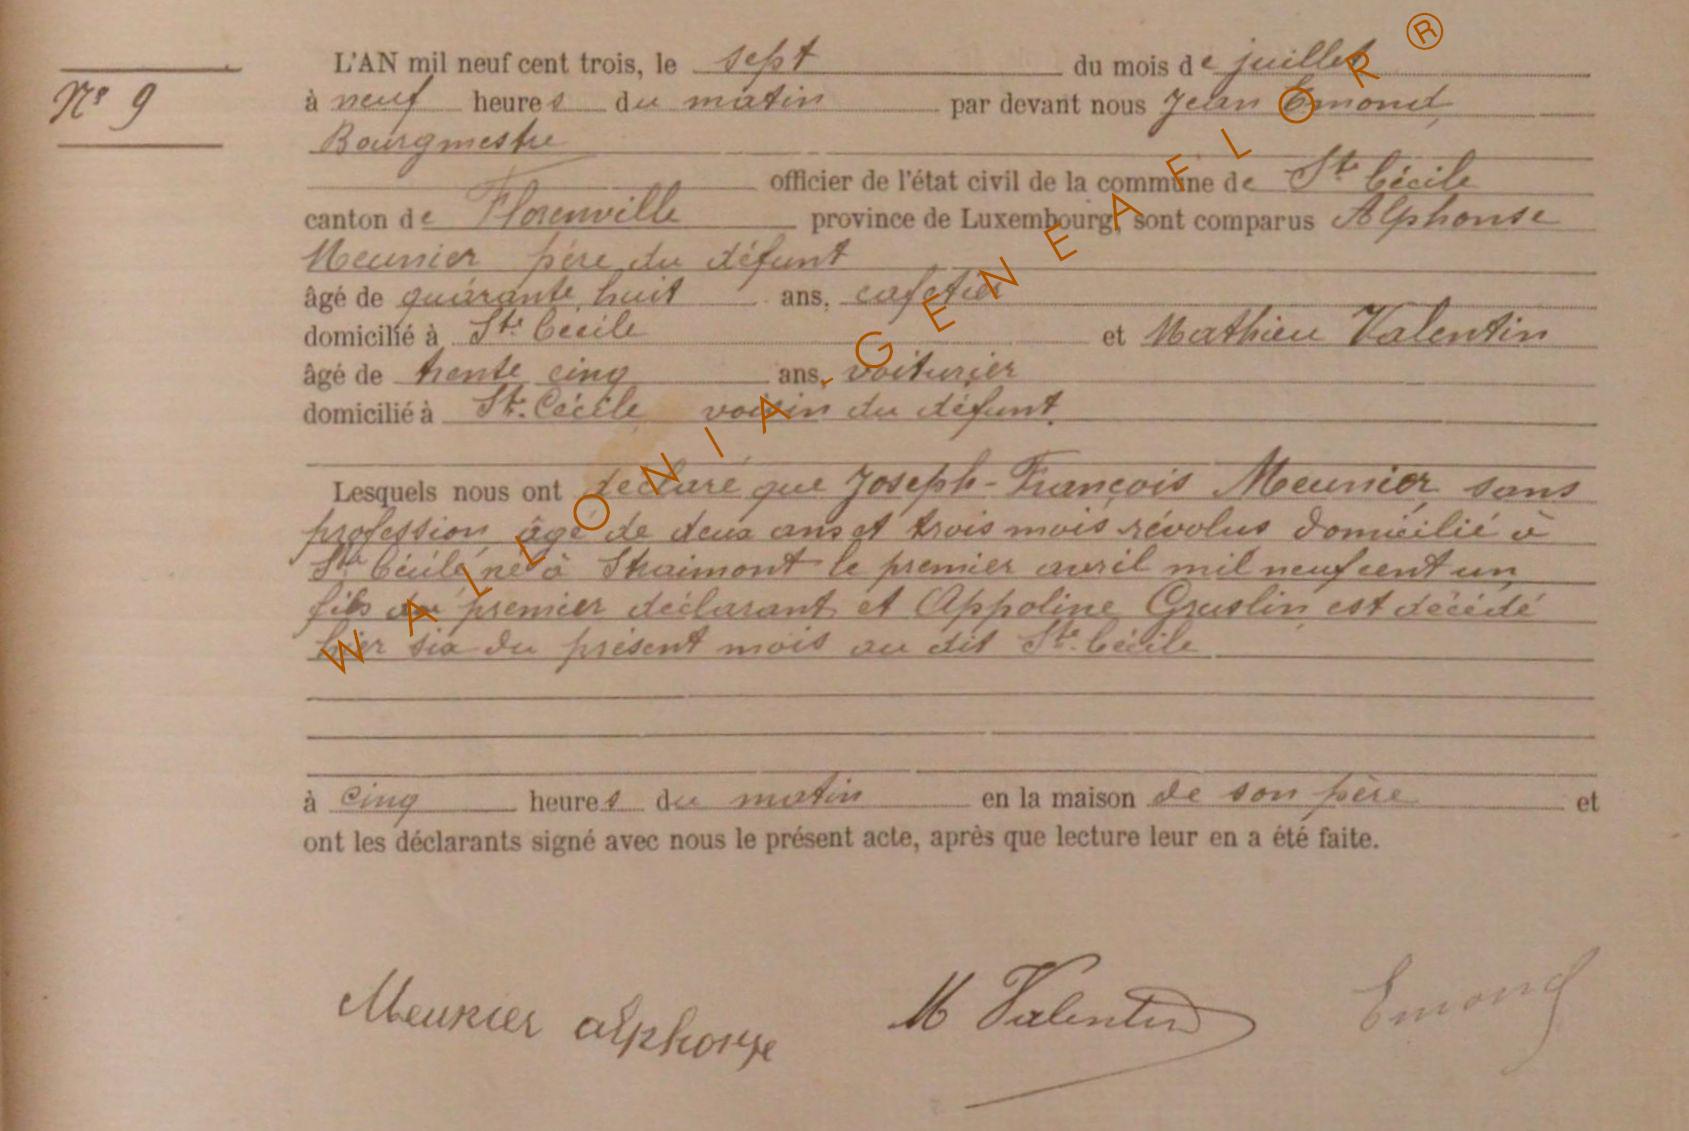 N° 9
L'AN mil neuf cent trois, le sept du mois de juillet
à neuf heures du matin par devant nous Jean Emond,
Bourgmestre
officier de l'état civil de la commune de Ste Cécile
canton de Florenville province de Luxembourg, sont comparus Alphonse
Meunier père du défunt
âgé de quarante huit ans, cafetier
domicilié à Ste Cécile et Mathieu Valentin
âgé de trente cinq ans, voiturier
domicilié à Ste. Cécile voisin du défunt.
Lesquels nous ont déclaré que Joseph-François Meunier sans
profession âgé de deux ans et trois mois révolus domicilié à
Ste Cécile né à Straimont le premier avril mil neuf cent un
fils du premier déclarant et Appoline Gruslin est décédé
hier six du présent mois au dit Ste. Cécile
à cinq heures du matin en la maison de son père et
ont les déclarants signé avec nous le présent acte, après que lecture leur en a été faite.
Meunier alphonse M Valentin Emond
WALLONIA-GENEAFLOR®